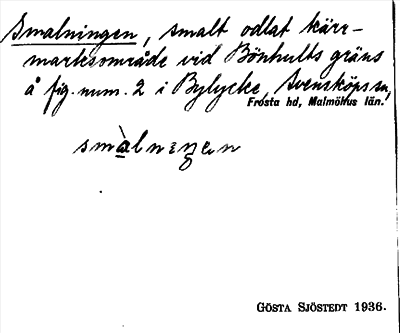 Smalningen, smalt odlat kärr-
marksområde vid Bönhults gräns
å fig. num. 2 i Bylycke, Svensköps sn,
Frosta hd, Malmöhus län.
smàlnıŋen
GÖSTA SJÖSTEDT 1936.